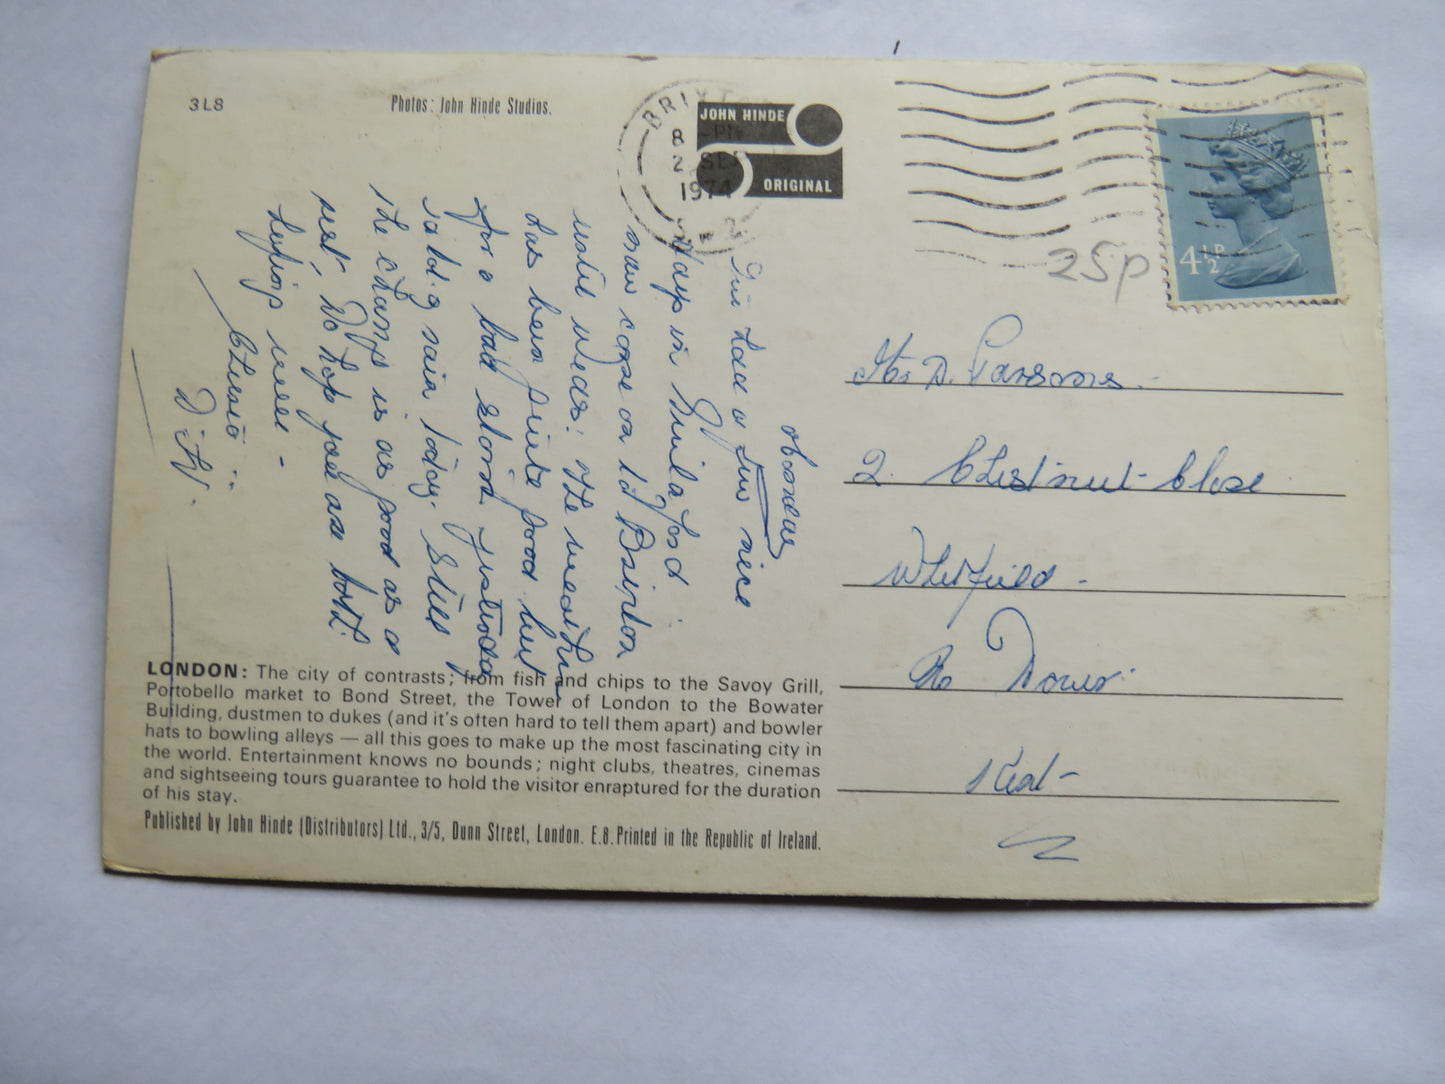 3L8
Photos: John Hinde Studios.
JOHN HINDE
ORIGINAL
BRIXTO
8 - PM
2 SEP
1974
4½P
25p
had a few nice
days in
now come on to Brixton
until Weds: The weather
has been quite good but
for a bad storm yesterday
rain today. Still
the change is as good as a
rest, Do hope you are both
keeping well -
Cheerio
D. Parsons.
2. Chestnut Close
Whitfield -
Nr Dover.
Kent -
LONDON: The city of contrasts; from fish and chips to the Savoy Grill,
Portobello market to Bond Street, the Tower of London to the Bowater
Building, dustmen to dukes (and it's often hard to tell them apart) and bowler
hats to bowling alleys — all this goes to make up the most fascinating city in
the world. Entertainment knows no bounds; night clubs, theatres, cinemas
and sightseeing tours guarantee to hold the visitor enraptured for the duration
of his stay.
Published by John Hinde (Distributors) Ltd., 3/5, Dunn Street, London. E.8. Printed in the Republic of Ireland.